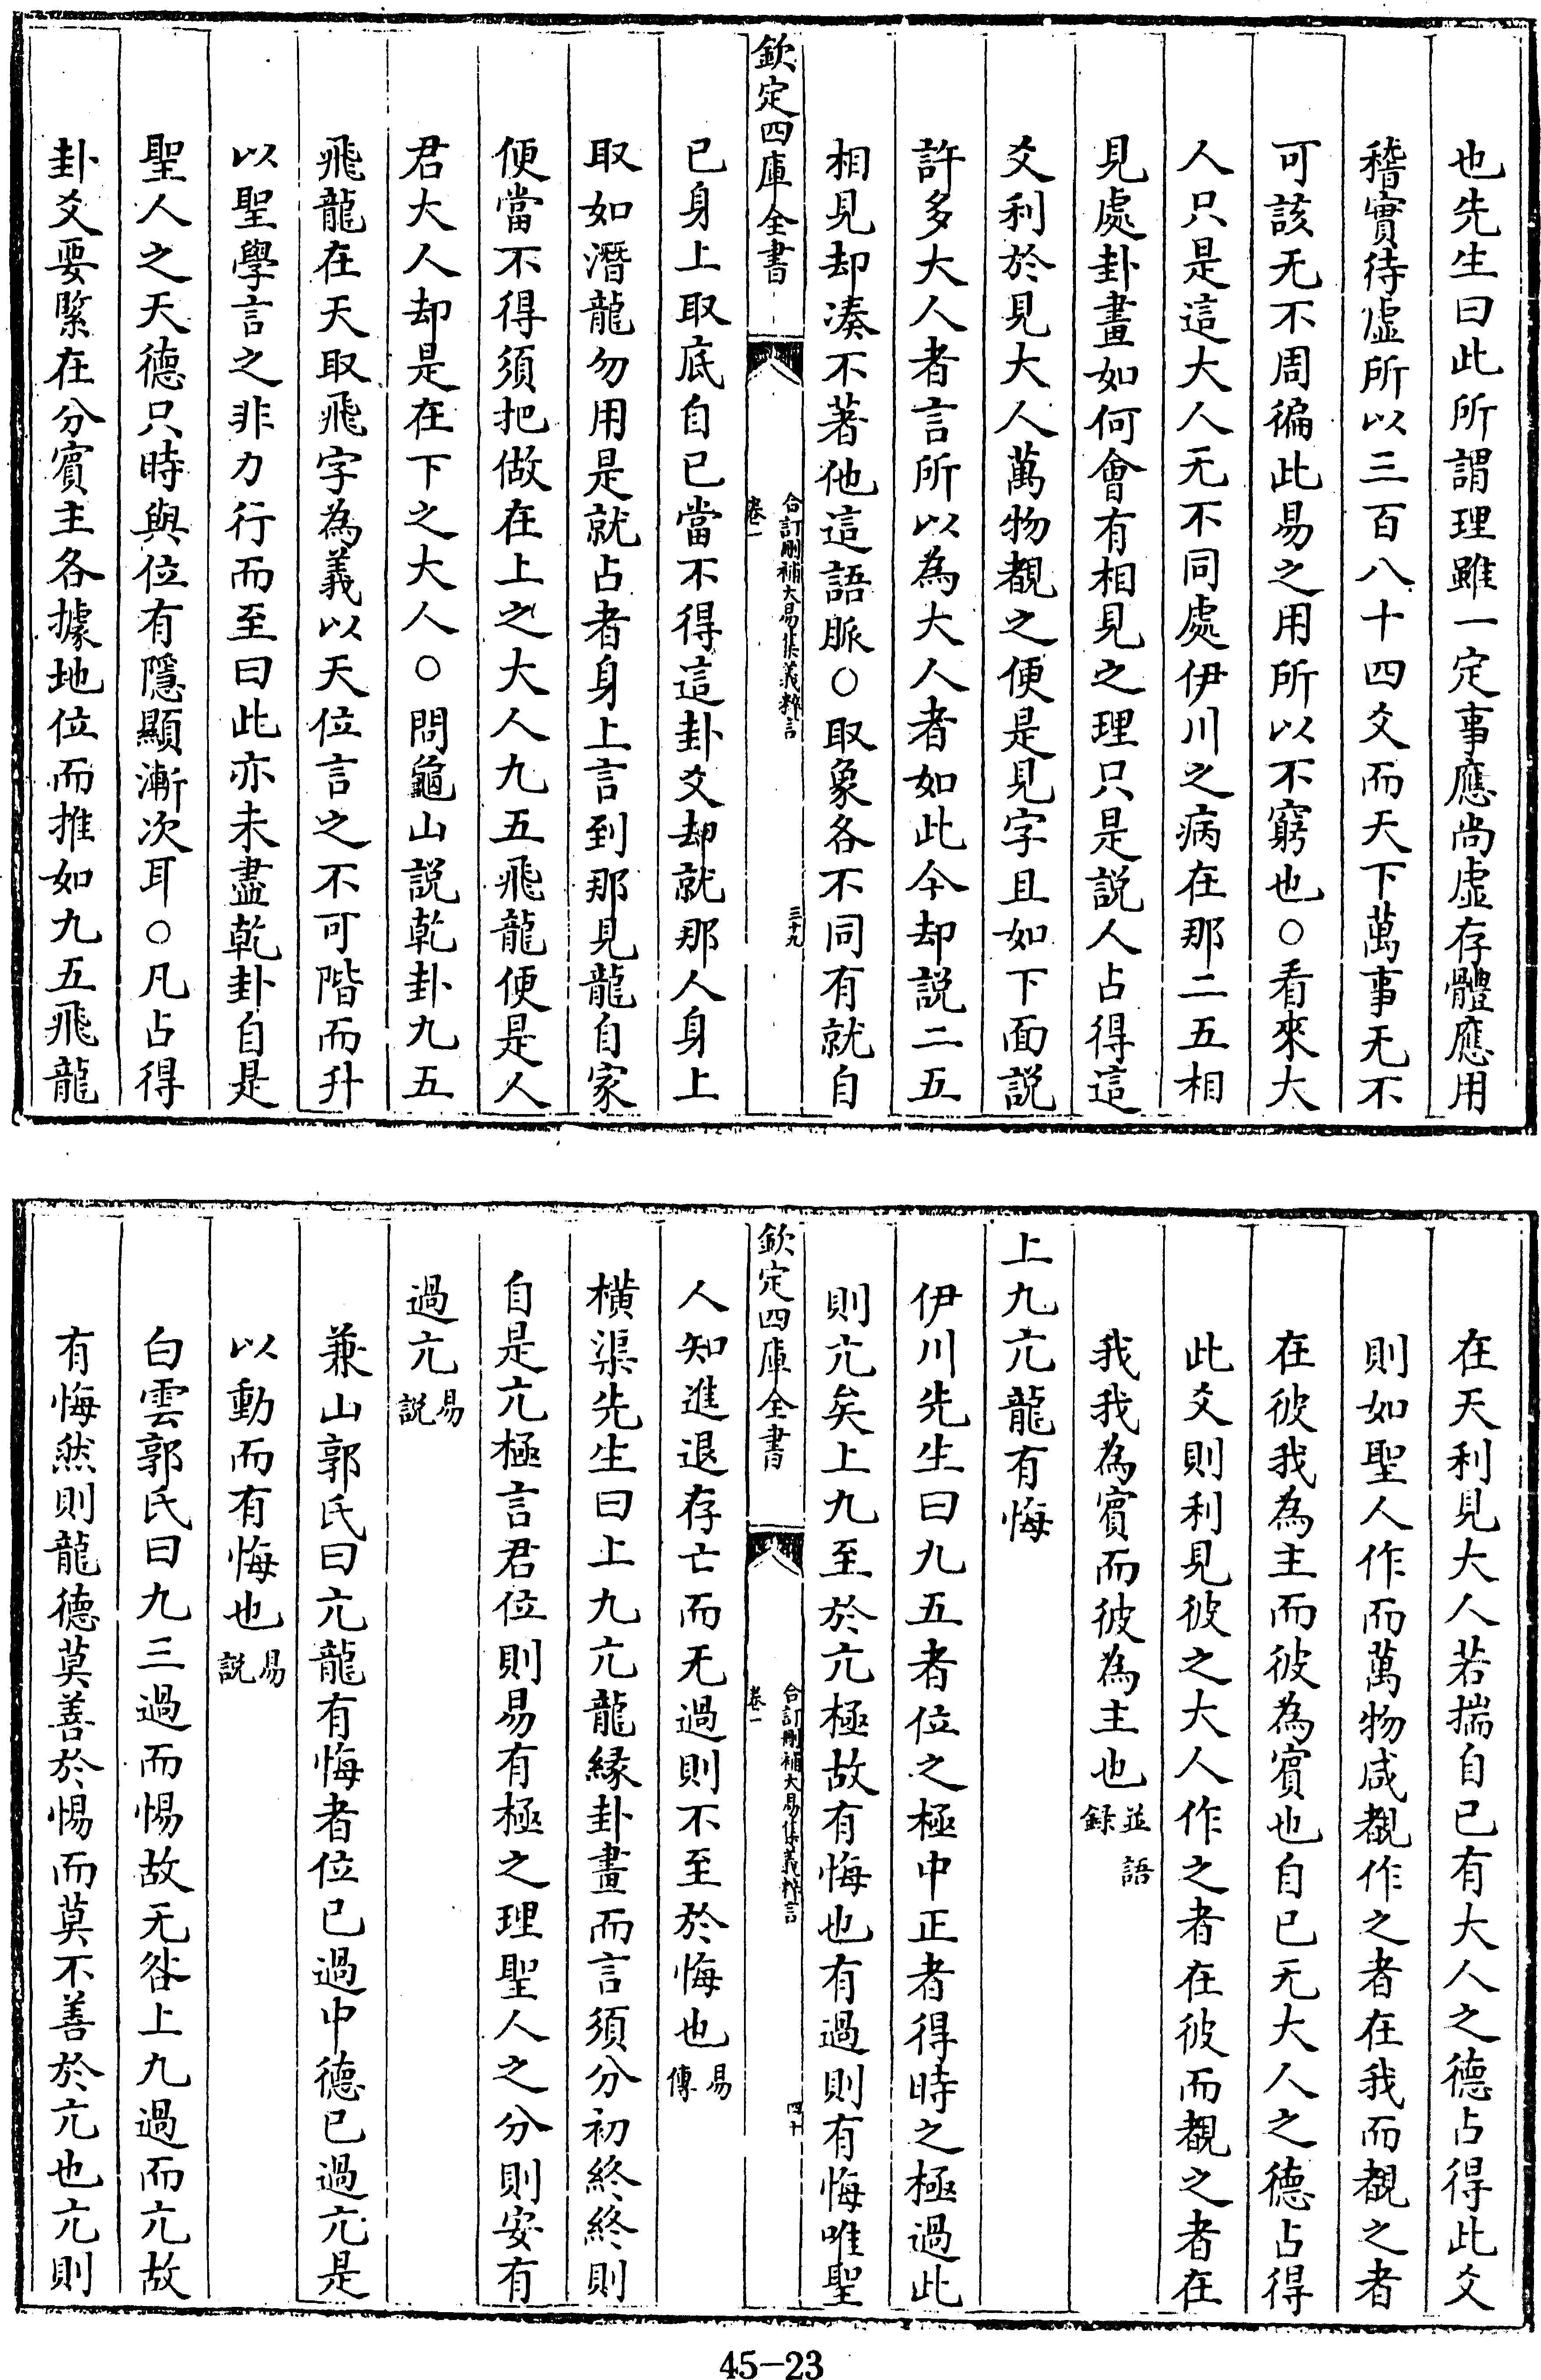 也先生曰此所謂理雖一定事應尚虛存體應用
稽實待虛所以三百八十四爻而天下萬事无不
可該无不周徧此易之用所以不窮也○看來大
人只是這大人无不同處伊川之病在那二五相
見處卦畫如何會有相見之理只是説人占得這
爻利於見大人萬物覩之便是見字且如下面説
許多大人者言所以為大人者如此今却説二五
相見却湊不著他這語脈○取象各不同有就自
欽定四庫全書
合訂刪補大易集義粹言
卷一
三十九
已身上取底自已當不得這卦爻却就那人身上
取如潛龍勿用是就占者身上言到那見龍自家
便當不得須把做在上之大人九五飛龍便是人
君大人却是在下之大人○問龜山説乾卦九五
飛龍在天取飛字為義以天位言之不可階而升
以聖學言之非力行而至曰此亦未盡乾卦自是
聖人之天德只時與位有隱顯漸次耳○凡占得
卦爻要緊在分賓主各據地位而推如九五飛龍
在天利見大人若揣自已有大人之德占得此爻
則如聖人作而萬物咸覩作之者在我而覩之者
在彼我為主而彼為賓也自已无大人之德占得
此爻則利見彼之大人作之者在彼而覩之者在
我我為賓而彼為主也並語録
上九亢龍有悔
伊川先生曰九五者位之極中正者得時之極過此
則亢矣上九至於亢極故有悔也有過則有悔唯聖
欽定四庫全書
合訂刪補大易集義粹言
卷一
四十
人知進退存亡而无過則不至於悔也易傳
橫渠先生曰上九亢龍緣卦畫而言須分初終終則
自是亢極言君位則易有極之理聖人之分則安有
過亢易説
兼山郭氏曰亢龍有悔者位已過中德已過亢是
以動而有悔也易説
白雲郭氏曰九三過而惕故无咎上九過而亢故
有悔然則龍德莫善於惕而莫不善於亢也亢則
45-23